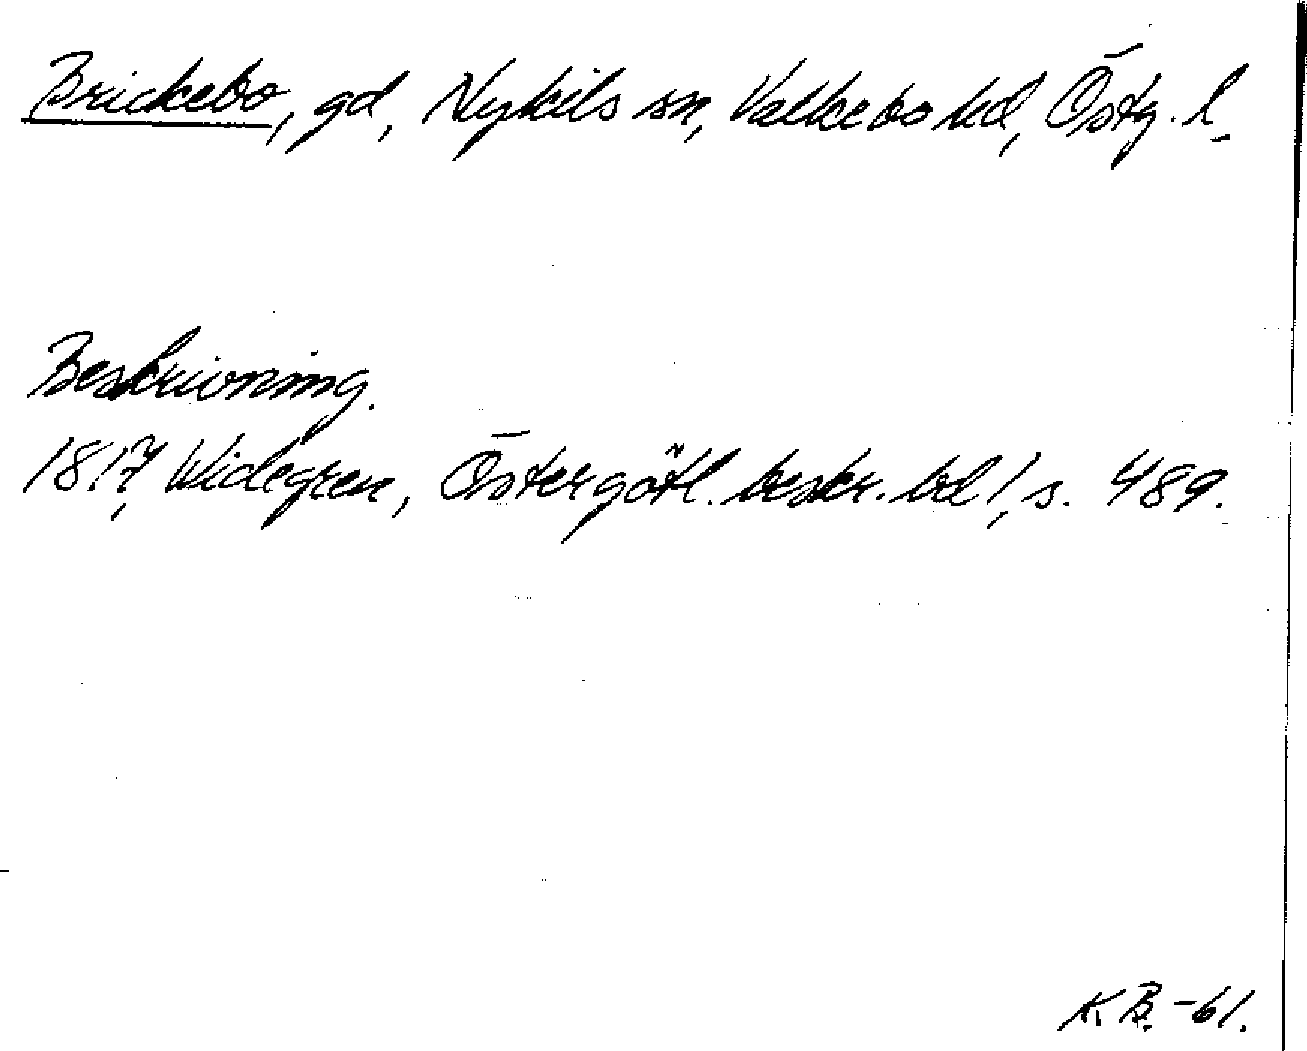 Brickebo, gd, Nykils sn, Valkebo hd, Östg. l.
Beskrivning.
1817, Widegren, Östergötl. beskr. bd 1, s. 489.
K.B. -61.